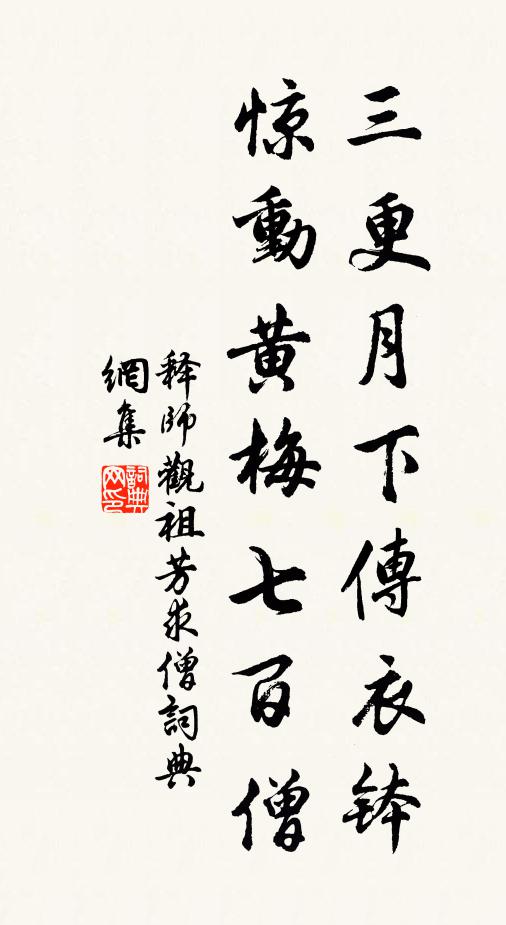 三更月下傳衣鉢
惊動黄梅七百僧
释师觀祖芳求僧詞典
網集
詞典網印